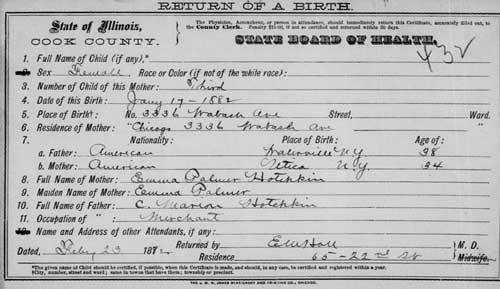 RETURN OF A BIRTH.
State of Illinois,
COOK COUNTY.
The Physician, Accoucheur, or person in attendance, should immediately return this Certificate, accurately filled out, to
the County Clerk. Penalty $10.00, if not so certified and returned within 30 days.
STATE BOARD OF HEALTH.
432
1. Full Name of Child (if any),*
2. Sex Female Race or Color (if not of the white race):
3. Number of Child of this Mother: Third
4. Date of this Birth: Jany 17 - 1882
5. Place of Birth: No. 3336 Wabash Ave Street, Ward.
6. Residence of Mother: "Chicago 3336 Wabash Ave
7. Nationality: Place of Birth: Age of:
a. Father: American Waterville N.Y. 38
b. Mother: American Utica N.Y. 34
8. Full Name of Mother: Emma Palmer Hotchkin
9. Maiden Name of Mother: Emma Palmer
10. Full Name of Father: C. Marion Hotchkin
11. Occupation of " Merchant
12. Name and Address of other Attendants, if any:
Returned by E M Hall M. D.
Dated, Feby 23 1882 Residence 65 - 22nd St Midwife.
*The given name of Child should be certified, if possible, when this Certificate is made, and should, in any case, be certified and registered within a year.
†City, number, street and ward; same in towns that have them; township or precinct.
THE J. M. W. JONES STATIONERY AND PRINTING CO., CHICAGO.